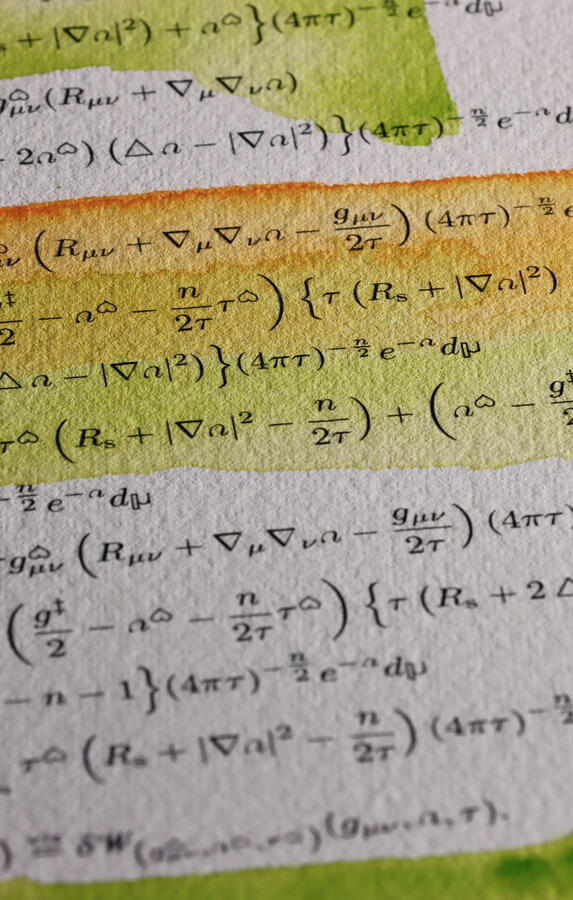 s + |∇ภ|²) + ภ^⌂}(4πτ)^{-n/2} e^{-ภ} dμ
g^⌂_{μν}(R_{μν} + ∇_μ∇_νภ)
- 2ภ^⌂) (△ภ − |∇ภ|²)}(4πτ)^{-n/2} e^{-ภ} d
^⌂_{μν} (R_{μν} + ∇_μ∇_νภ − g_{μν}/2τ) (4πτ)^{-n/2} e
^‡/2 − ภ^⌂ − n/2τ τ^⌂) {τ (R_s + |∇ภ|²)
△ภ − |∇ภ|²)}(4πτ)^{-n/2} e^{-ภ} dμ
τ^⌂ (R_s + |∇ภ|² − n/2τ) + (ภ^⌂ − g^‡/2
^{-n/2} e^{-ภ} dμ
g^⌂_{μν} (R_{μν} + ∇_μ∇_νภ − g_{μν}/2τ) (4πτ)
(g^‡/2 − ภ^⌂ − n/2τ τ^⌂) {τ (R_s + 2△
− n − 1}(4πτ)^{-n/2} e^{-ภ} dμ
τ^⌂ (R_s + |∇ภ|² − n/2τ) (4πτ)^{-n/2}
) = δW (g_{μν}, ภ, τ).